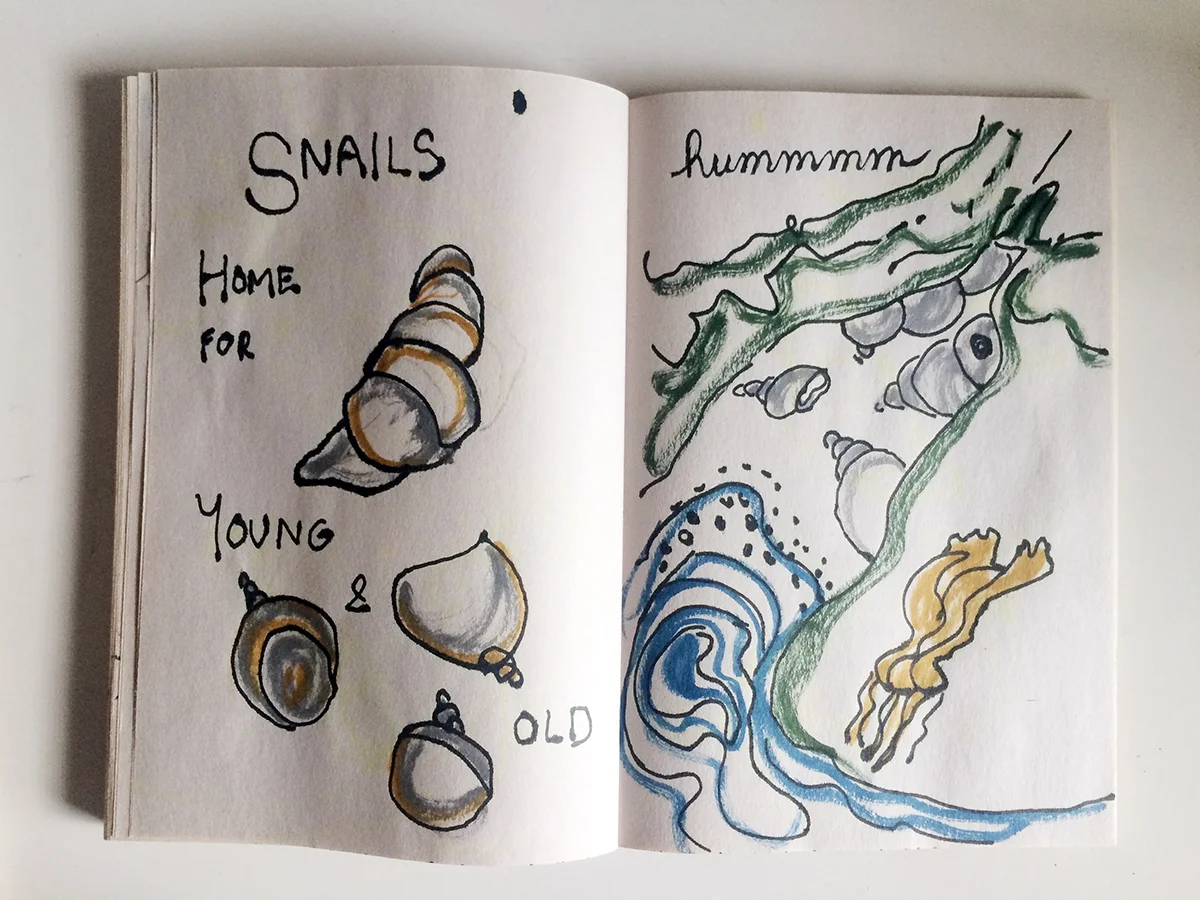 SNAILS
HOME
FOR
YOUNG
&
OLD
hummmm